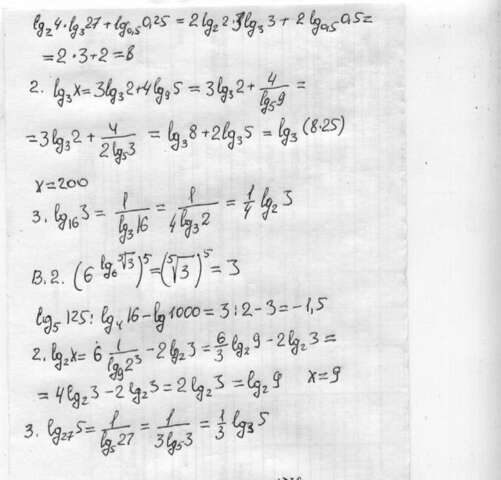 lg₂4·lg₃27+lg₀,₅0,25=2lg₂2·3lg₃3+2lg₀,₅0,5=
=2·3+2=8
2. lg₃x=3lg₃2+4lg₉5=3lg₃2+4/lg₅9=
=3lg₃2+4/(2lg₅3)=lg₃8+2lg₃5=lg₃(8·25)
x=200
3. lg₁₆3=1/lg₃16=1/(4lg₃2)=1/4 lg₂3
В.2. (6^(lg₆ ⁵√3))⁵=(⁵√3)⁵=3
lg₅125:lg₄16-lg1000=3:2-3=-1,5
2. lg₂x=6 1/lg₉2³-2lg₂3=6/3 lg₂9-2lg₂3=
=4lg₂3-2lg₂3=2lg₂3=lg₂9 x=9
3. lg₂₇5=1/lg₅27=1/(3lg₅3)=1/3 lg₃5